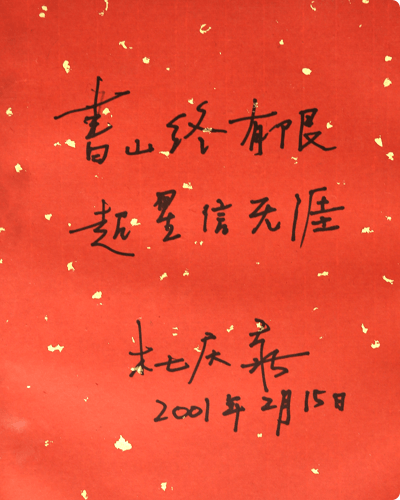 書山终有限
超星信无涯
庆
2001年2月15日